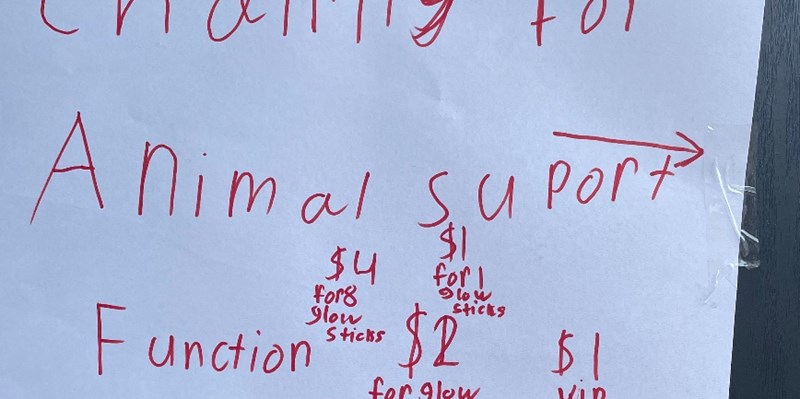 Charity for
Animal suport
$4
for 8
glow
sticks
$1
for 1
glow
sticks
Function
$2
for glow
$1
vip